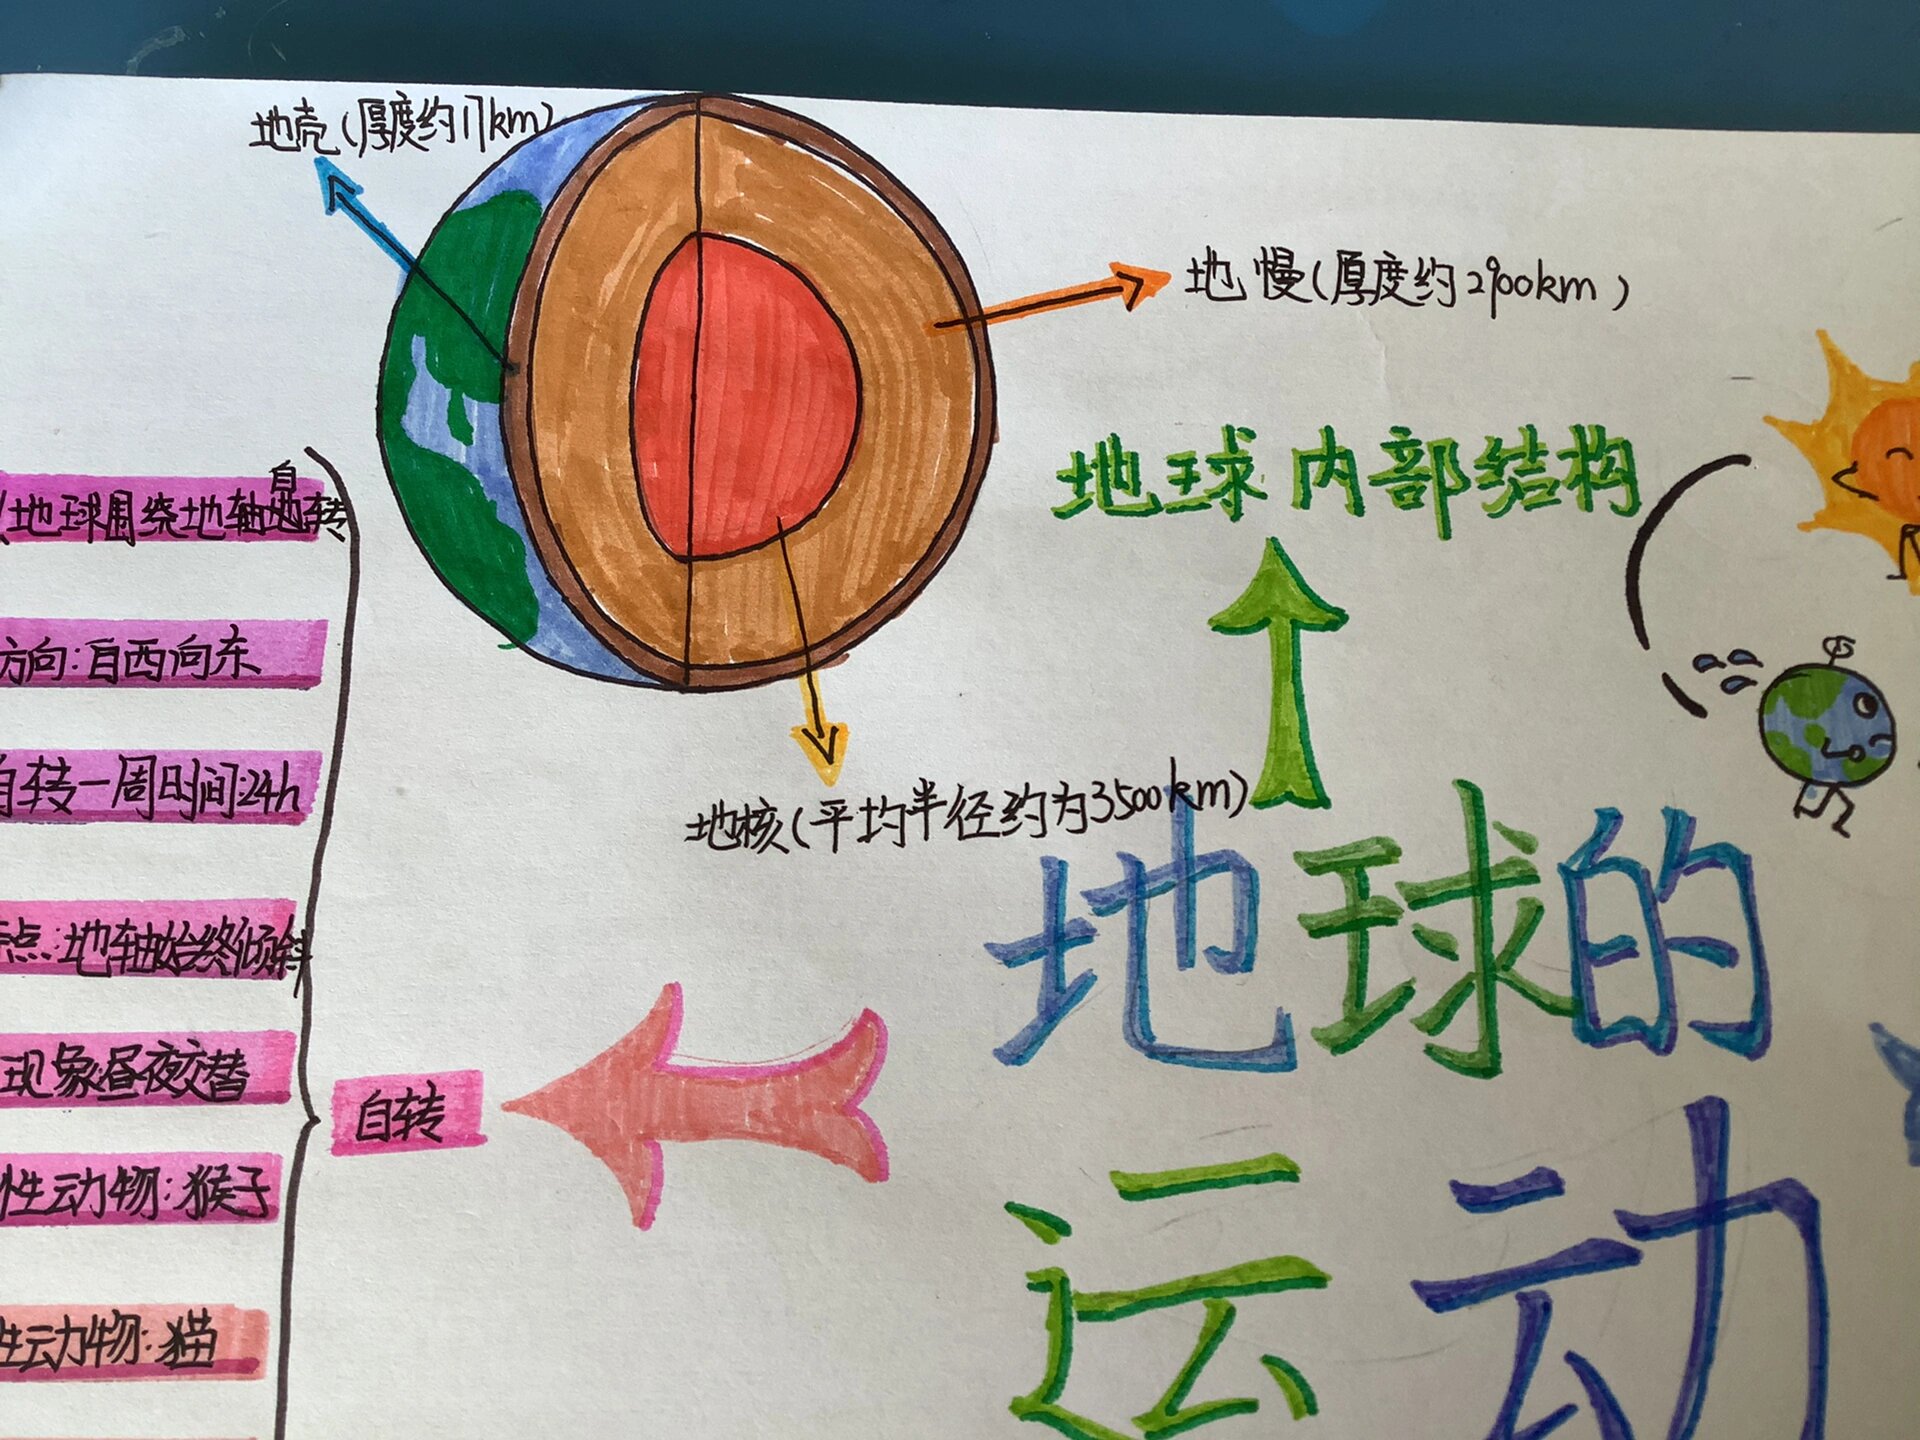 地壳(厚度约17km)
地慢(厚度约2900km)
地核(平均半径约为3500km)
地球内部结构
地球的
运动
自转
地球围绕地轴自转
方向:自西向东
自转一周时间:24h
点:地轴始终倾斜
现象:昼夜交替
性动物:猴子
性动物:猫